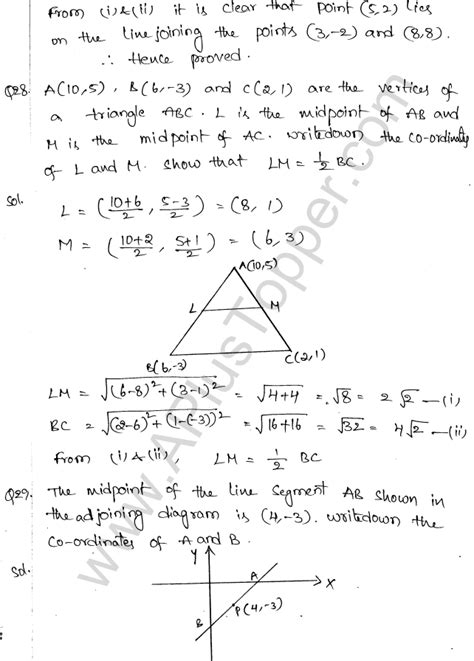 From (i) & (ii) it is clear that point (5,2) lies
on the line joining the points (3,-2) and (8,8).
∴ Hence proved.
Q28. A(10,5), B(6,-3) and C(2,1) are the vertices of
a triangle ABC. L is the midpoint of AB and
M is the midpoint of AC. Write down the co-ordinates
of L and M. Show that LM = 1/2 BC.
Sol.
L = ((10+6)/2, (5-3)/2) = (8, 1)
M = ((10+2)/2, (5+1)/2) = (6, 3)
A(10,5)
L
M
B(6,-3)
C(2,1)
LM = √((6-8)² + (3-1)²) = √(4+4) = √8 = 2√2 —(i)
BC = √((2-6)² + (1-(-3))²) = √(16+16) = √32 = 4√2 —(ii)
From (i) & (ii), LM = 1/2 BC
Q29. The midpoint of the line segment AB shown in
the adjoining diagram is (4,-3). write down the
co-ordinates of A and B.
Sol.
Y
A
X
P(4,-3)
B
www.APlusTopper.com